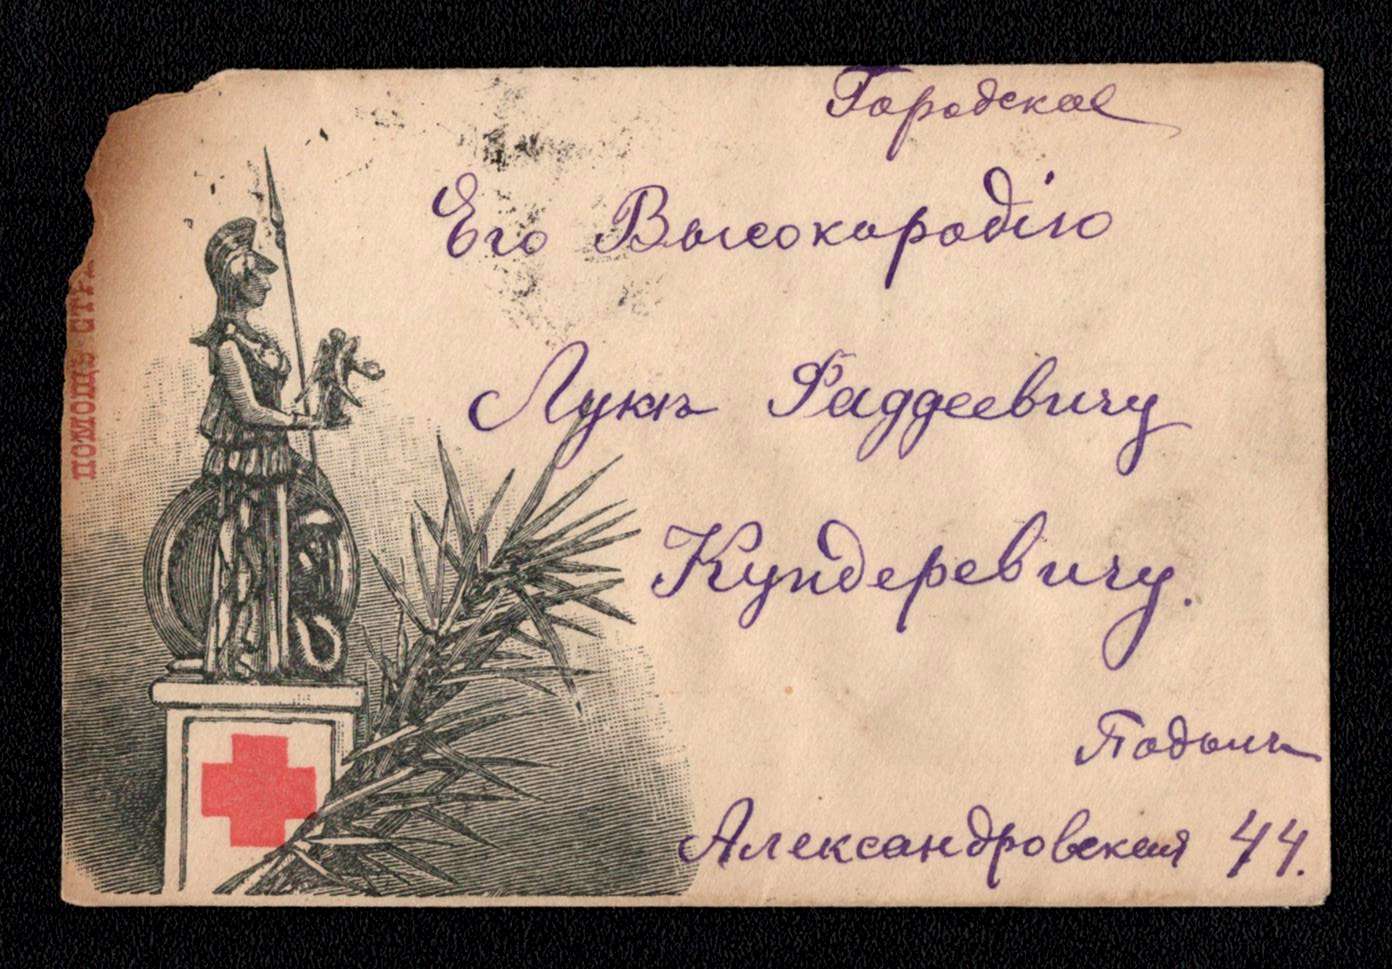 Городское
Его Высокородію
Лукѣ Фаддеевичу
Кундеревичу.
Подолъ
Александровская 44.
ПОМОЩЬ